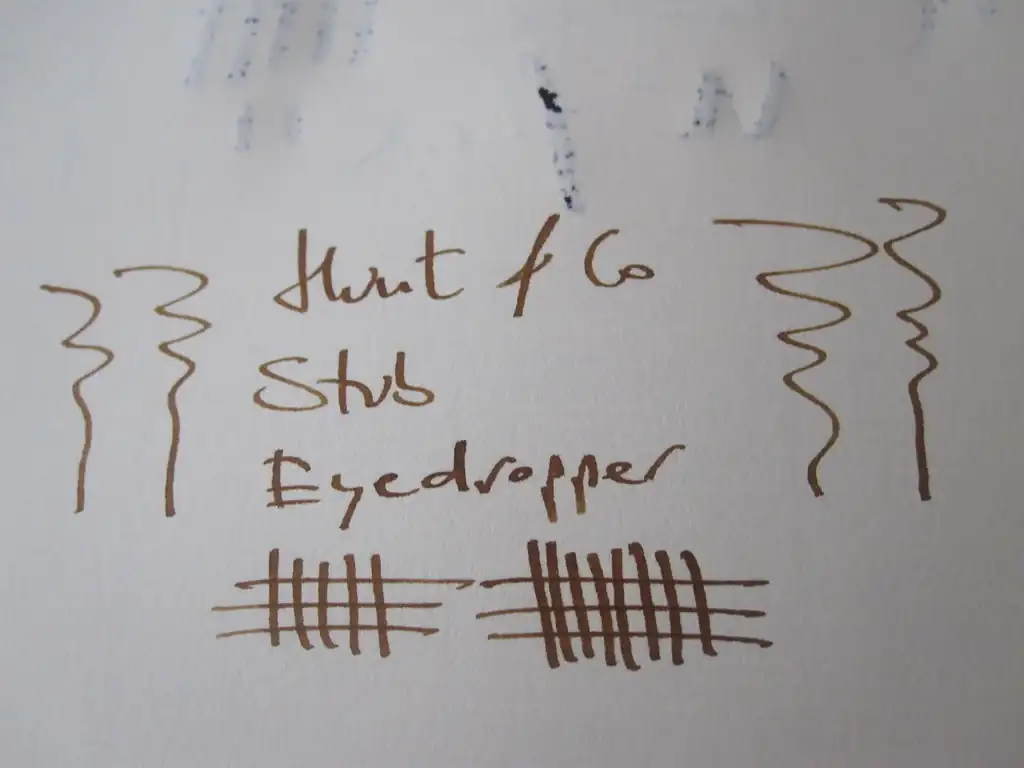 Hunt & Co
Stub
Eyedropper